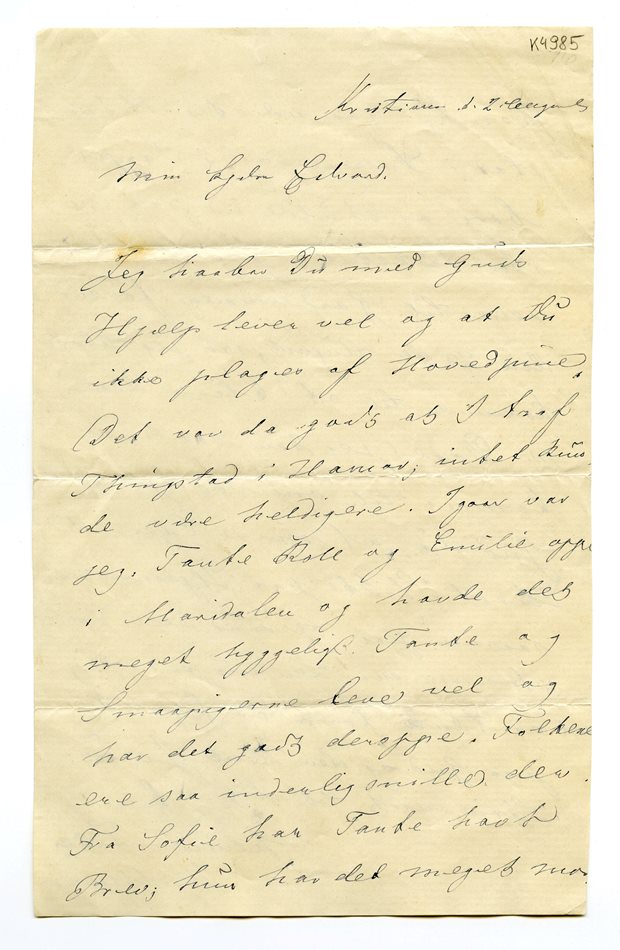 K4985
Kristiania d. 2 August
Min kjære Edvard.
Jeg haaber Du med Guds
Hjælp lever vel og at Du
ikke plages af Hovedpine.
Det var da godt at I traf
Thingstad i Hamar; intet kun-
de være heldigere. Igaar var
jeg, Tante Roll og Emilie oppe
i Maridalen og havde det
meget hyggeligt. Tante og
Smaapigerne leve vel og
har det godt deroppe. Folkene
ere saa inderlig snille der.
Fra Sofie har Tante havt
Brev; hun har det meget mor